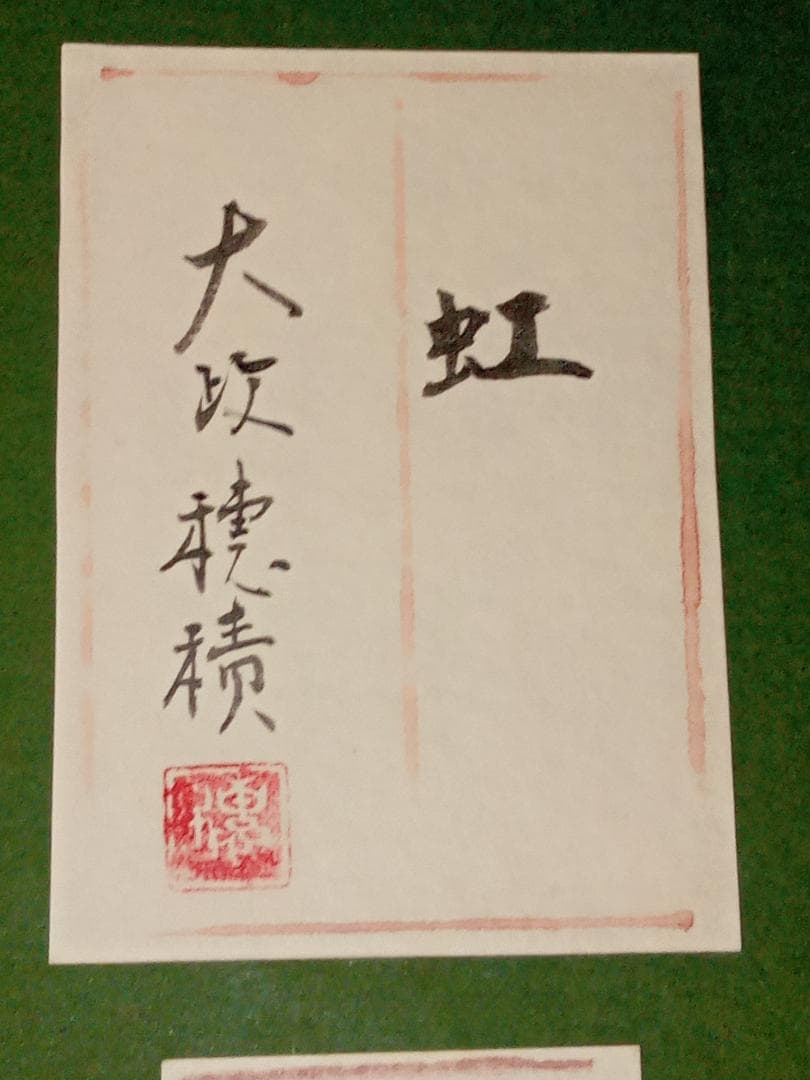 虹
大政穂積